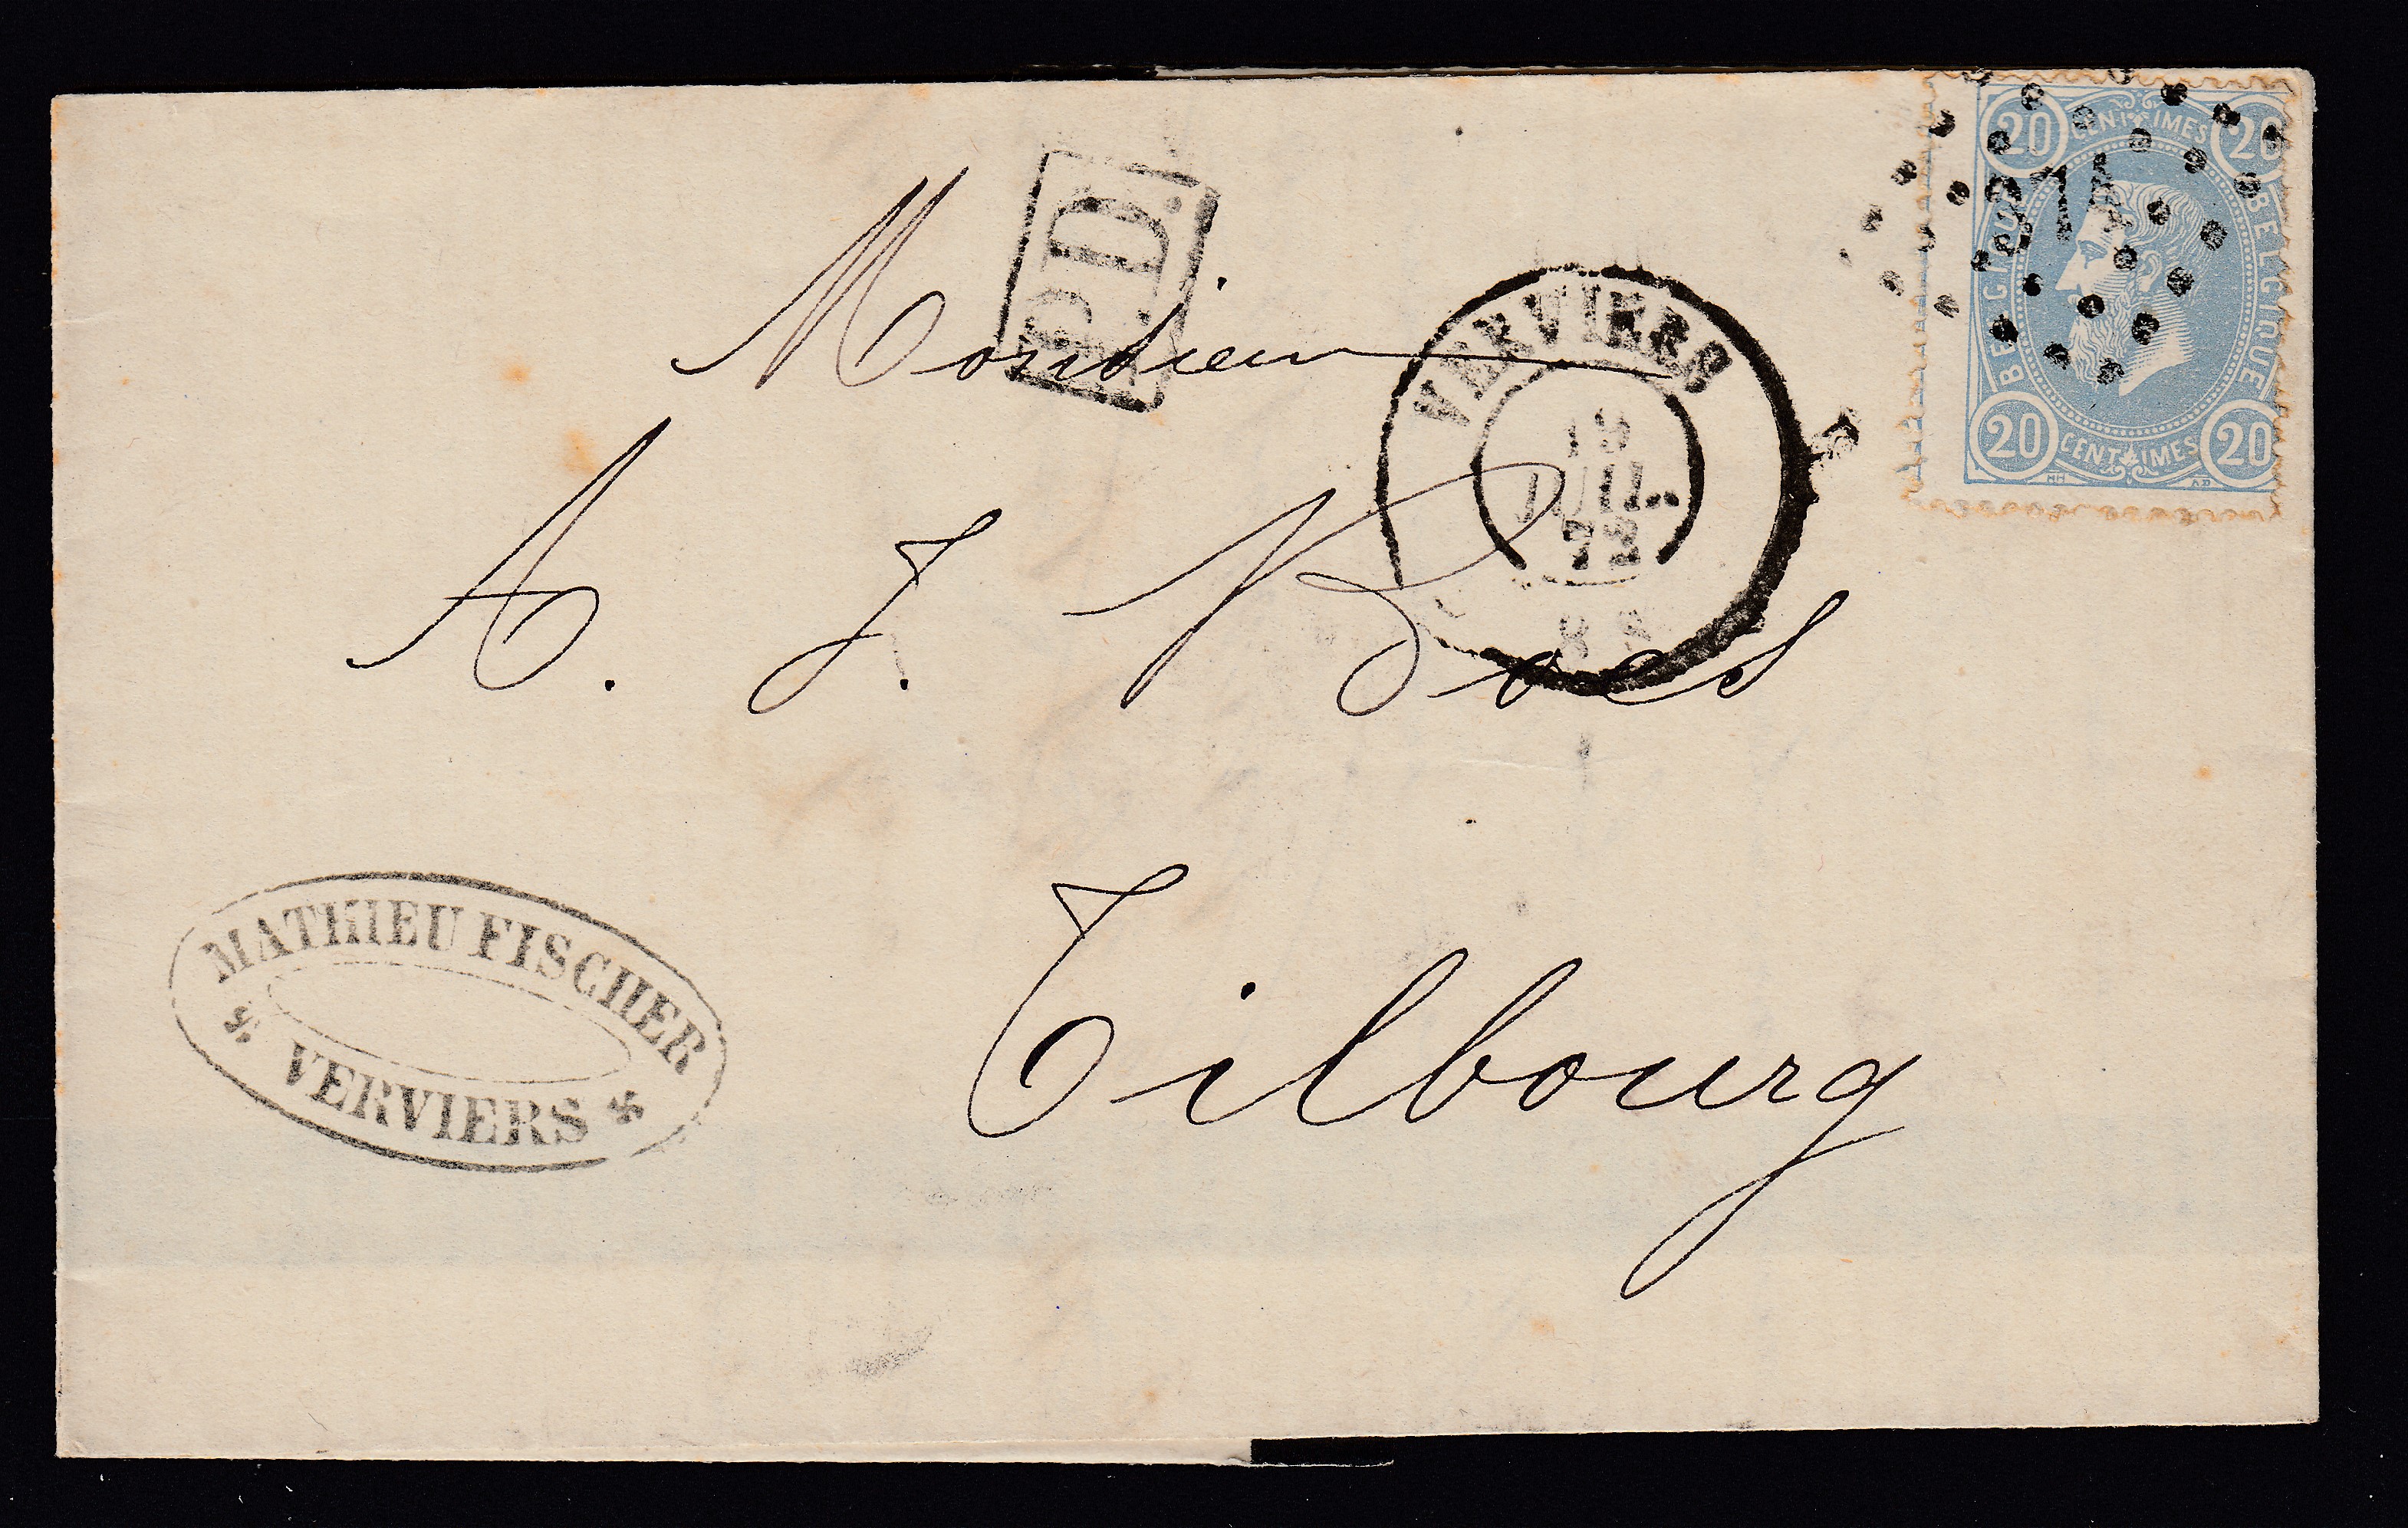 P.D.
Monsieur
A. J. Boes
Tilbourg
VERVIERS
JUIL.
MATHIEU FISCHER
VERVIERS
20 CENTIMES 20
BELGIQUE BELGIQUE
20 CENTIMES 20